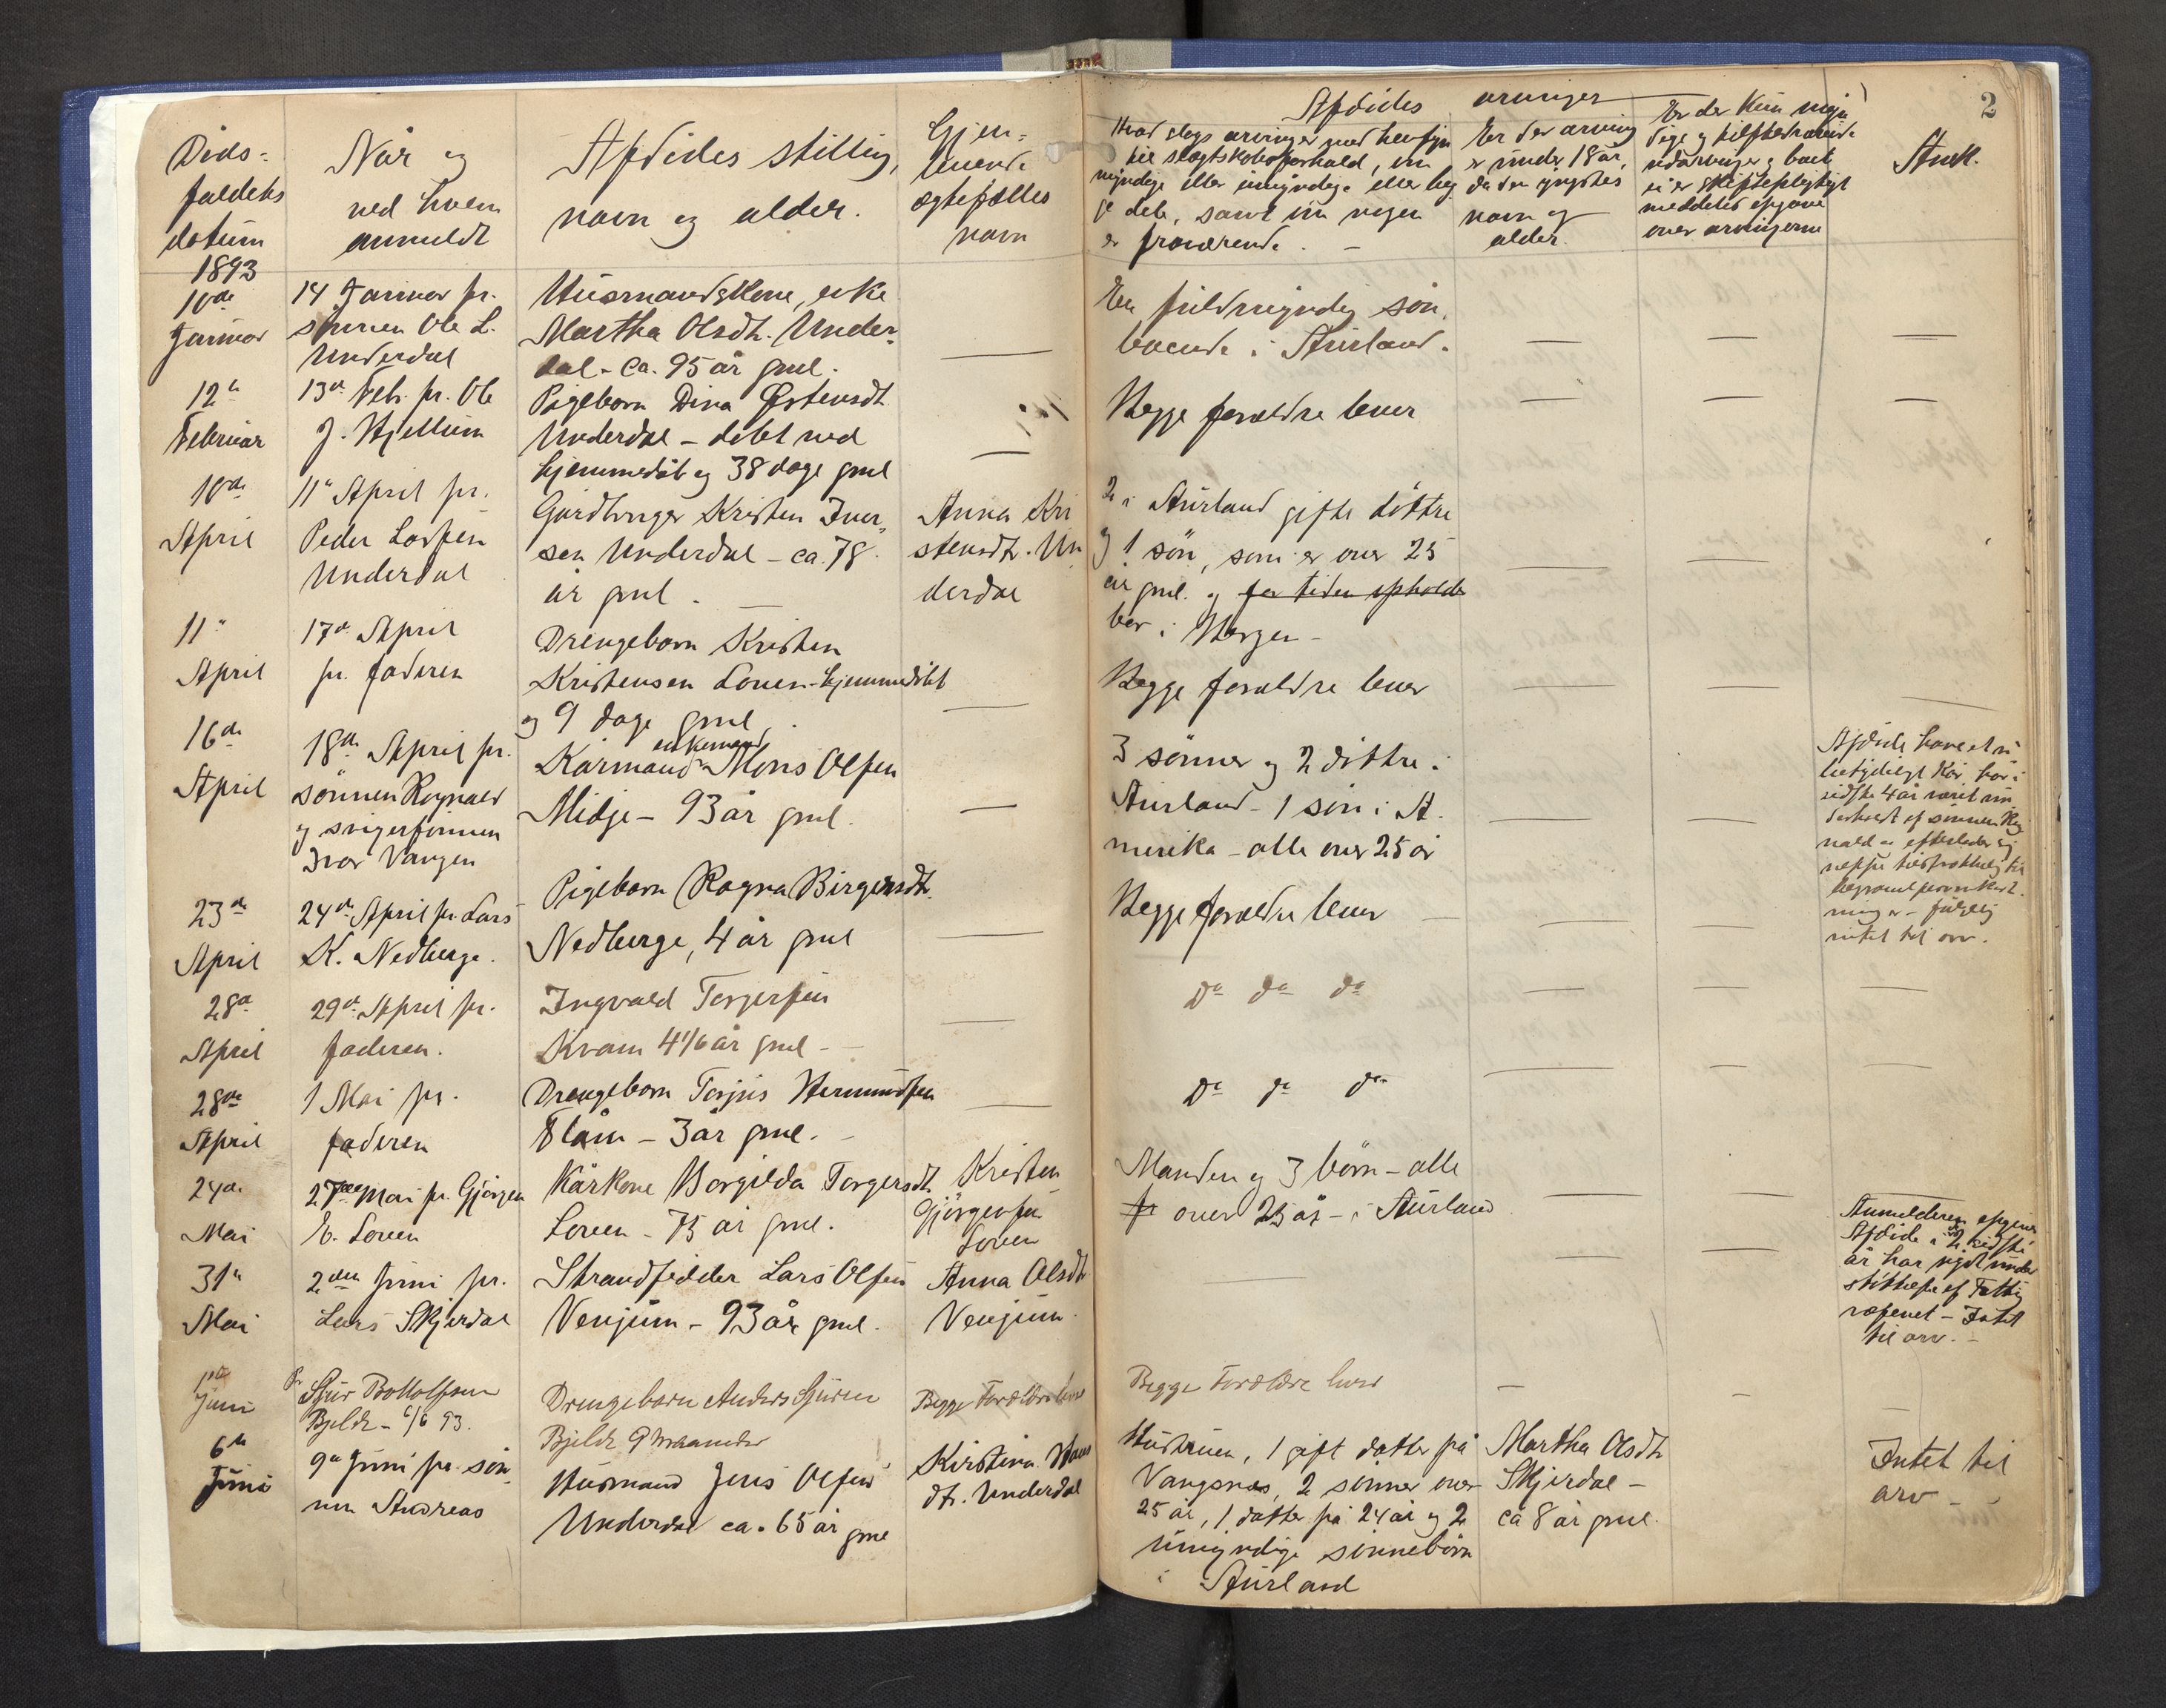 2
Döds-
faldets
datum
1893
Når og
ved hvem
anmeldt
Afdödes stilling,
navn og alder.
Gjen-
levende
ægtefælles
navn
Afdödes arvinger
Hvad slags arvinger med hensyn
til slægtskabsforhold, om
myndige eller umyndige eller beg-
ge dele, samt om nogen
er fraværende. -
Er der arving
er under 18 år,
da den yngstes
navn og
alder.
Er der kun myn
dige og tilstedeværende
udarvinger og boet
ei er skiftepligtigt
meddeles opgave
over arvingerne
Anm.
10de
Januar
14 Januar pr.
sönnen Ole L.
Underdal
Husmandskone, enke
Martha Olsdt. Under-
dal - ca. 95 år gml.
En fuldmyndig sön,
boende i Aurland.
12te
Februar
13de Febr. pr. Ole
J. Hjellum
Pigebarn Dina Østensdt
Underdal - döbt ved
hjemmedåb og 38 dage gml
Begge forældre lever
10de
April
11te April pr.
Peder Larsen
Underdal
Gårdbruger Kristen Iver-
sen Underdal - ca. 78
år gml. -
Anna Kri
stensdt. Un
derdal
2 i Aurland gifte döttre
og 1 sön, som er over 25
år gml. og for tiden opholder
bor i Bergen -
11te
April
17de April
pr. faderen
Drengebarn Kristen
Kristensen Loven - hjemmedöbt
og 9 dage gml.
Begge forældre lever
16de
April
18de April pr.
sönnen Rognald
og svigersönnen
Ivar Vangen
enkemand
Kårmand Mons Olsen
Midje - 93 år gml.
3 sönner og 2 döttre i
Aurland - 1 sön i A-
merika - alle over 25 år
Afdöde havet et u-
betydeligt kår, har i
sidste 4 år været un
derholdt af sönnen Rog
nald og efterlader sig
neppe tilstrækkelig til
begravelsesomkost-
ninger - fölgelig
intet til arv.
23de
April
24de April pr. Lars
K. Nedberge.
Pigebarn Ragna Birgersdt.
Nedberge, 4 år gml
Begge forældre lever
28de
April
29de April pr.
faderen.
Ingvald Torgersen
Kvam 4 1/6 år gml -
Do do do
28de
April
1 Mai pr.
faderen
Drengebarn Torjus Hermundsen
Flåm - 3 år gml. -
Do do do
24de
Mai
27de Mai pr. Gjörgen
E. Loven
Kårkone Borgilda Torgersdt
Loven - 75 år gml.
Kristen
Gjörgensen
Loven
Manden og 3 börn - alle
over 25 år - i Aurland
31te
Mai
2den Juni pr.
Lars Skjerdal
Strandsidder Lars Olsen
Venjum - 93 år gml.
Anna Olsdt
Venjum
Anmelderen opgiver
Afdöde i de 2 sidste
år har nydt under
støttelse af Fattig
væsenet - Intet
til arv. -
1ste
Juni
Pr Sjur Bottolfsen
Bjelde - 6/6 93.
Drengebarn Anders Sjursen
Bjelde 9 Maaneder
Begge Forældre lever
Begge Forældre lever
6te
Juni
9de Juni pr. sön
nen Andreas
Husmand Jens Olsen
Underdal ca. 65 år gml
Kirstina Hans
dt. Underdal
Hustruen, 1 gift datter på
Vangsnes, 2 sönner over
25 år, 1 datter på 24 år og 2
umyndige sönnebörn
i Aurland
Martha Olsdt
Skjerdal -
ca 8 år gml.
Intet til
arv -